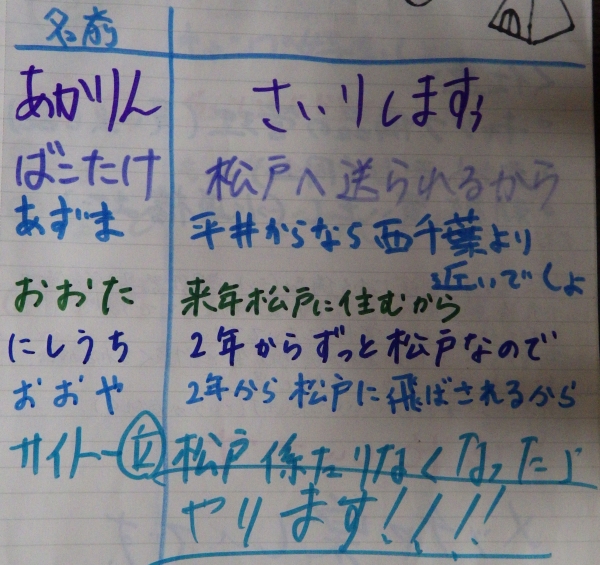 名前
あかりん さいりしますぅ
ばこたけ 松戸へ送られるから
あずま 平井からなら西千葉より
近いでしょ
おおた 来年松戸に住むから
にしうち 2年からずっと松戸なので
おおや 2年から松戸に飛ばされるから
サイトー 松戸係たりなくなったら
やります!!!!